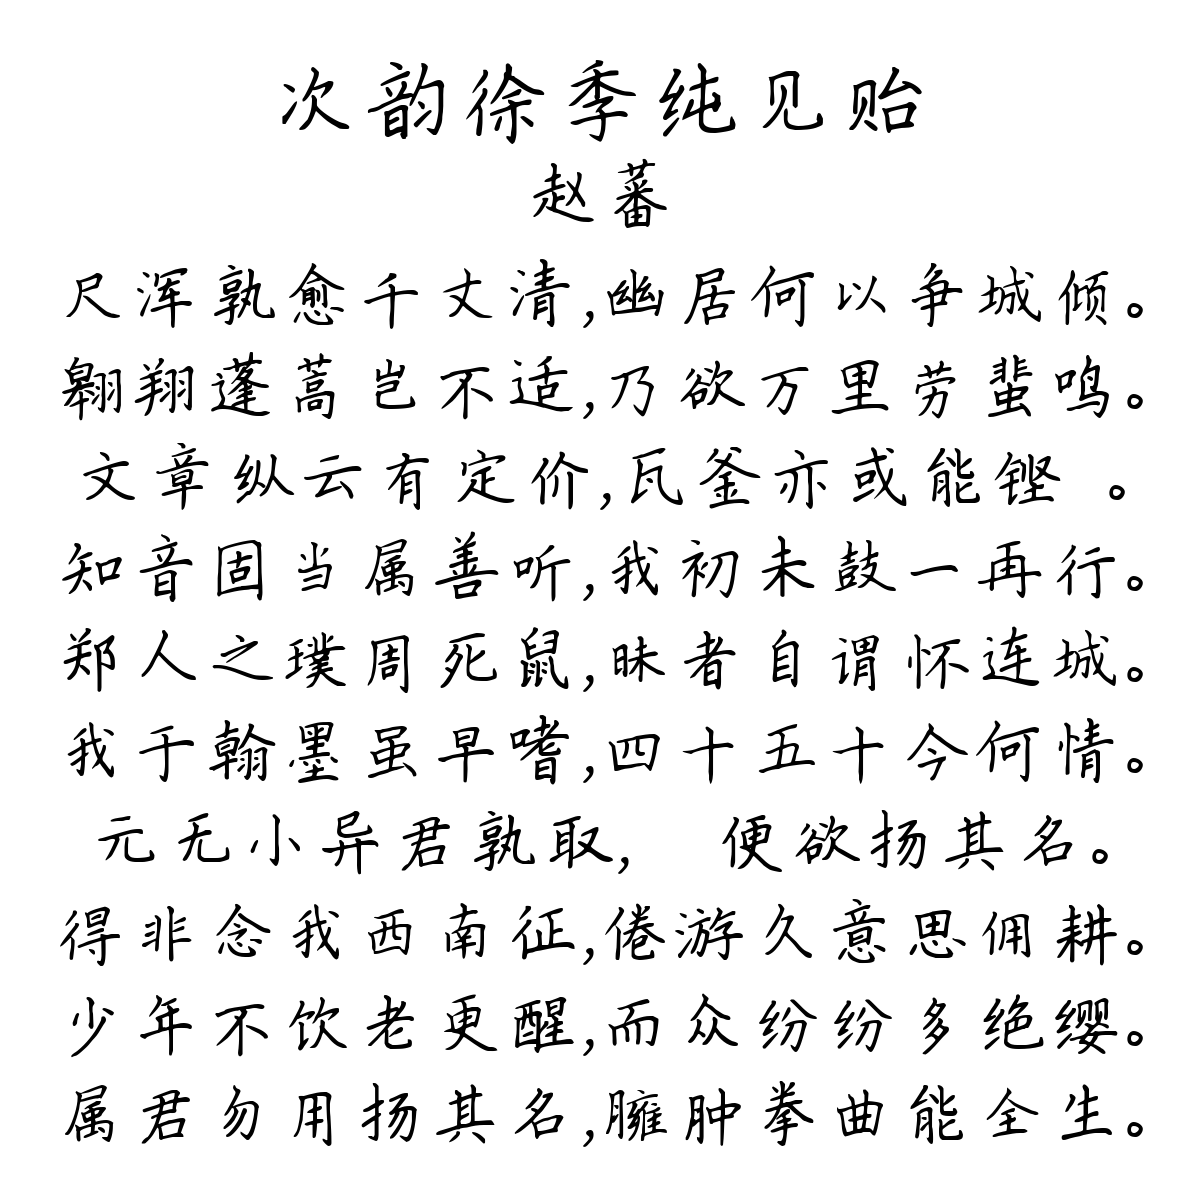 次韵徐季纯见贻
赵蕃
尺浑孰愈千丈清,幽居何以争城倾。
翱翔蓬蒿岂不适,乃欲万里劳蜚鸣。
文章纵云有定价,瓦釜亦或能铿 。
知音固当属善听,我初未鼓一再行。
郑人之璞周死鼠,昧者自谓怀连城。
我于翰墨虽早嗜,四十五十今何情。
元无小异君孰取, 便欲扬其名。
得非念我西南征,倦游久意思佣耕。
少年不饮老更醒,而众纷纷多绝缨。
属君勿用扬其名,臃肿拳曲能全生。